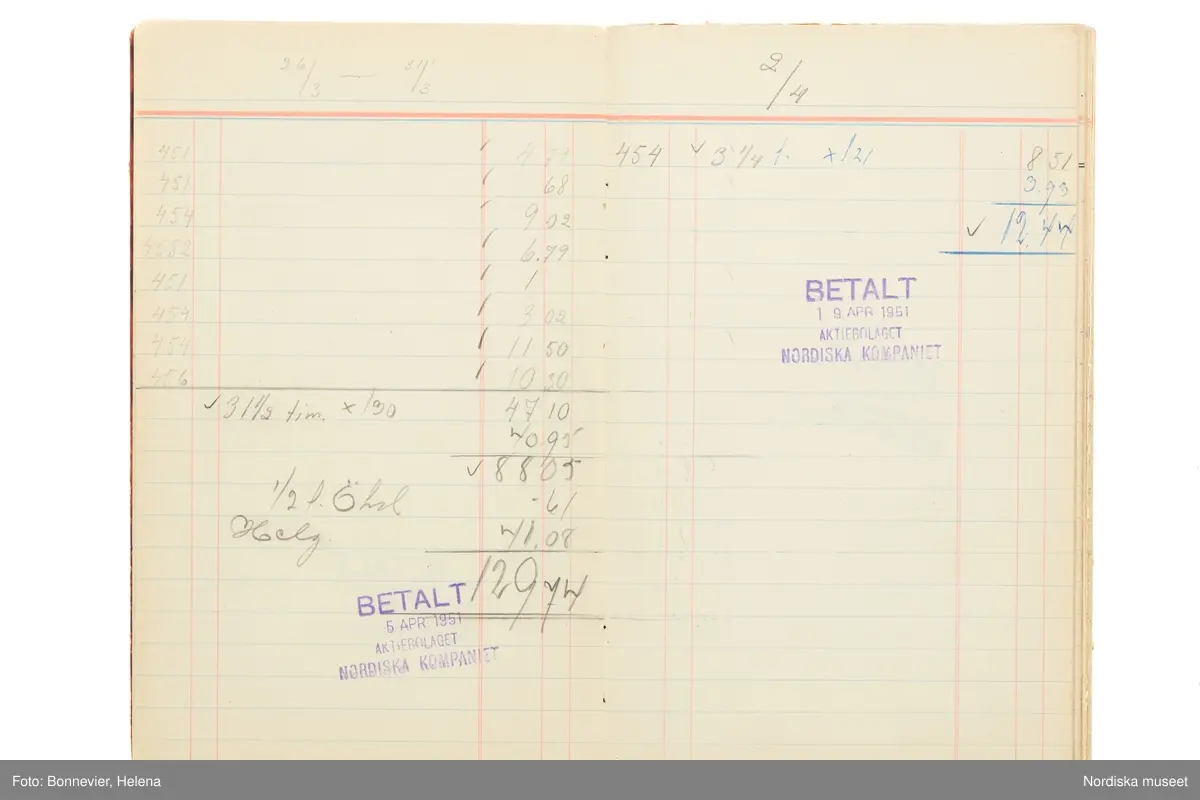 26/3 — 31/3
451 4 79
451 68
454 9 02
4582 6.79
451 1
454 3 02
454 11 50
456 10 30
✓ 31 1/2 tim. x 1/30 47 10
40.95
✓ 88 05
1/2 l. -61
Helg. 41.08
129 74
BETALT
5 APR 1951
AKTIEBOLAGET
NORDISKA KOMPANIET
2/4
454 ✓ 3 1/4 t. x 1/21 8 51
3.93
✓ 12.44
BETALT
19 APR 1951
AKTIEBOLAGET
NORDISKA KOMPANIET
Foto: Bonnevier, Helena
Nordiska museet